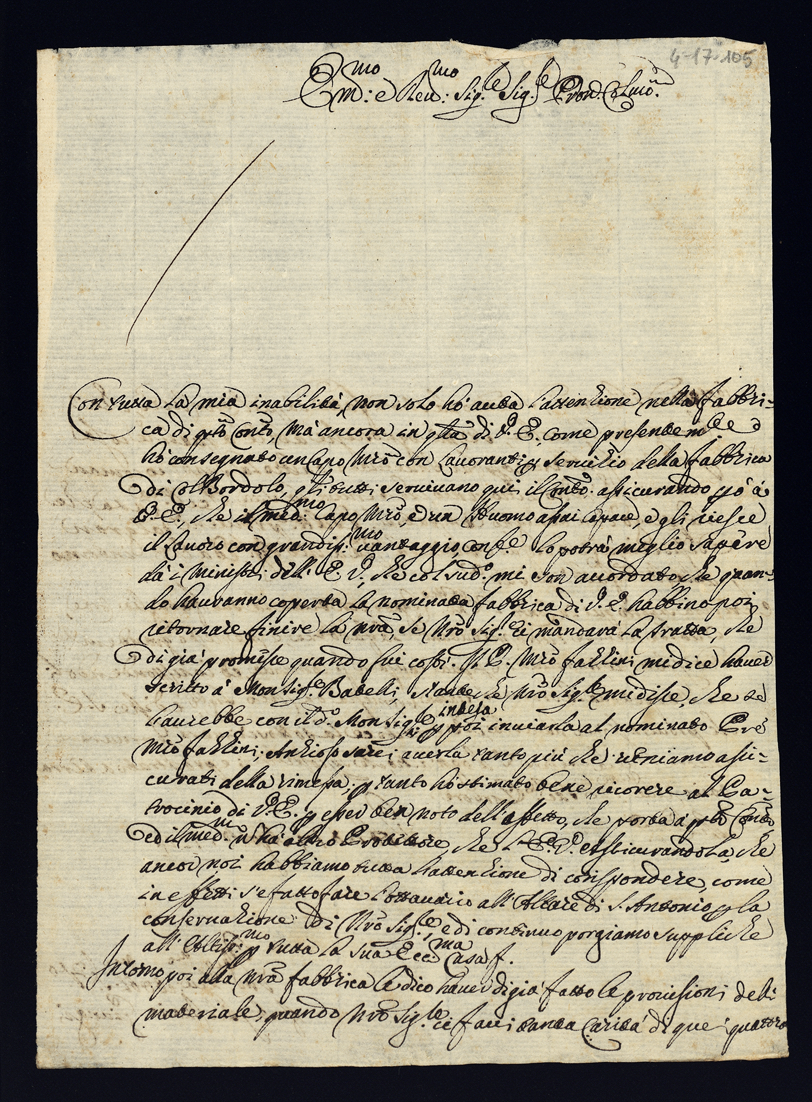 4-17-105
Em:mo e Reu:mo Sig.le Sig.le Pron. Colmo
Con tutta la mia inabilità, non solo hò auuta l'attenzione nella fabbri=
ca di qsto Conto, mà ancora in qlla di V. E. come presentem.te
hò consegnato un Capo Mro con lauoranti p seruitio della fabbrica
di Col Bordolo, qli tutti seruiuano qui il Conto. assicurando pò à
V. E., che il med:mo Capo Mro è un Huomo assai capace, e gli riesce
il lauoro con grandiss:mo uantaggio, lo potrà meglio sapere
dà i Ministri dell' E. V., che col sud.o mi son accordato, che quan=
do hauranno coperta la nominata fabbrica di V. E. habbino poi
ritornare finire la nra, se Nro Sig.re ci mandarà la tratta, che
di già promise quando fui costì. Il P. Mro fazzini mi dice hauer
scritto à Monsig.r Batelli, stante che Nro Sig.re mi disse, che se
l'aurebbe con il d.o Monsig.re intesa p poi inuiarla al nominato Pre
Mro fazzini; Anzioso sarei auerla tanto più che ueniamo assi=
curati della rimessa, p tanto hò stimato bene ricorere al Pa=
trocinio di V. E. p esser ben noto dell'affetto, che porta à qsto Conto
ed il med.mo n hà altro Protettore, che l'E. V. assicurandola, che
ancor noi habbiamo tutta l'attenzione di corispondere, come
in effetti s'è fatto fare l'ottauario all'Altare di S. Antonio p la
conseruazione di Nro Sig.re, e di continuo porgiamo suppliche
all' Altiss:mo p tutta la sua Ecc.ma Casa f.
Intorno poi alla nra fabbrica le dico hauer di già fatto le prouisioni del
materiale, quando Nro Sig.re ci facci tanta Carità di que' quattro